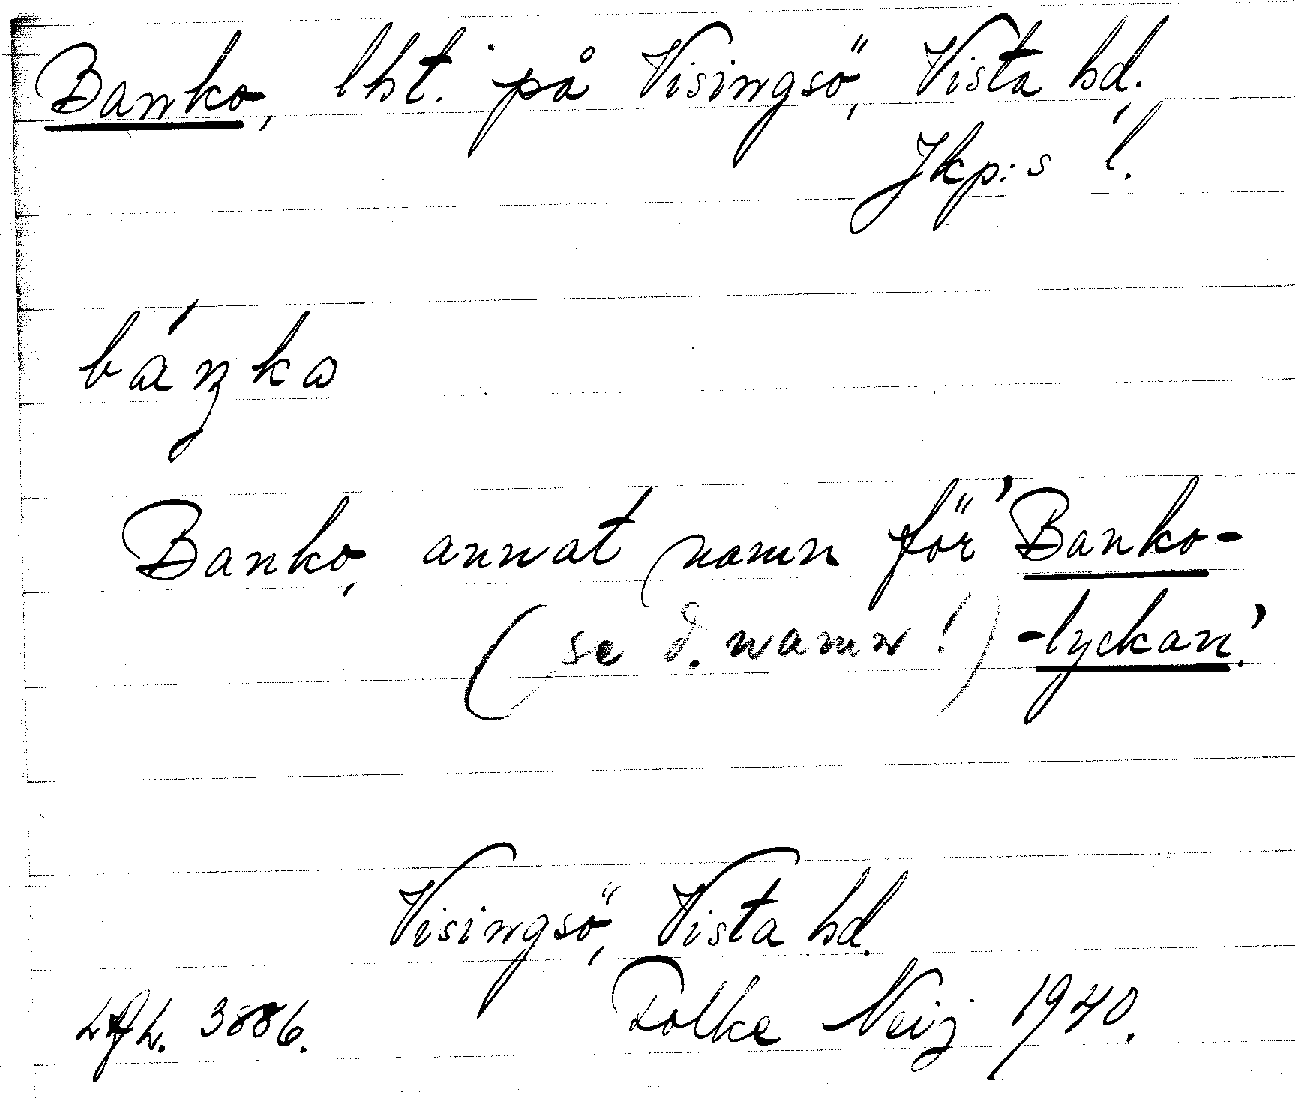 Banko, lht. på Visingsö, Vista hd.
Jkp:s l.
báŋka
Banko, annat namn för 'Banko-
(se d. namn!) -lyckan'.
Visingsö, Vista hd.
3886. Folke Neij 1940.